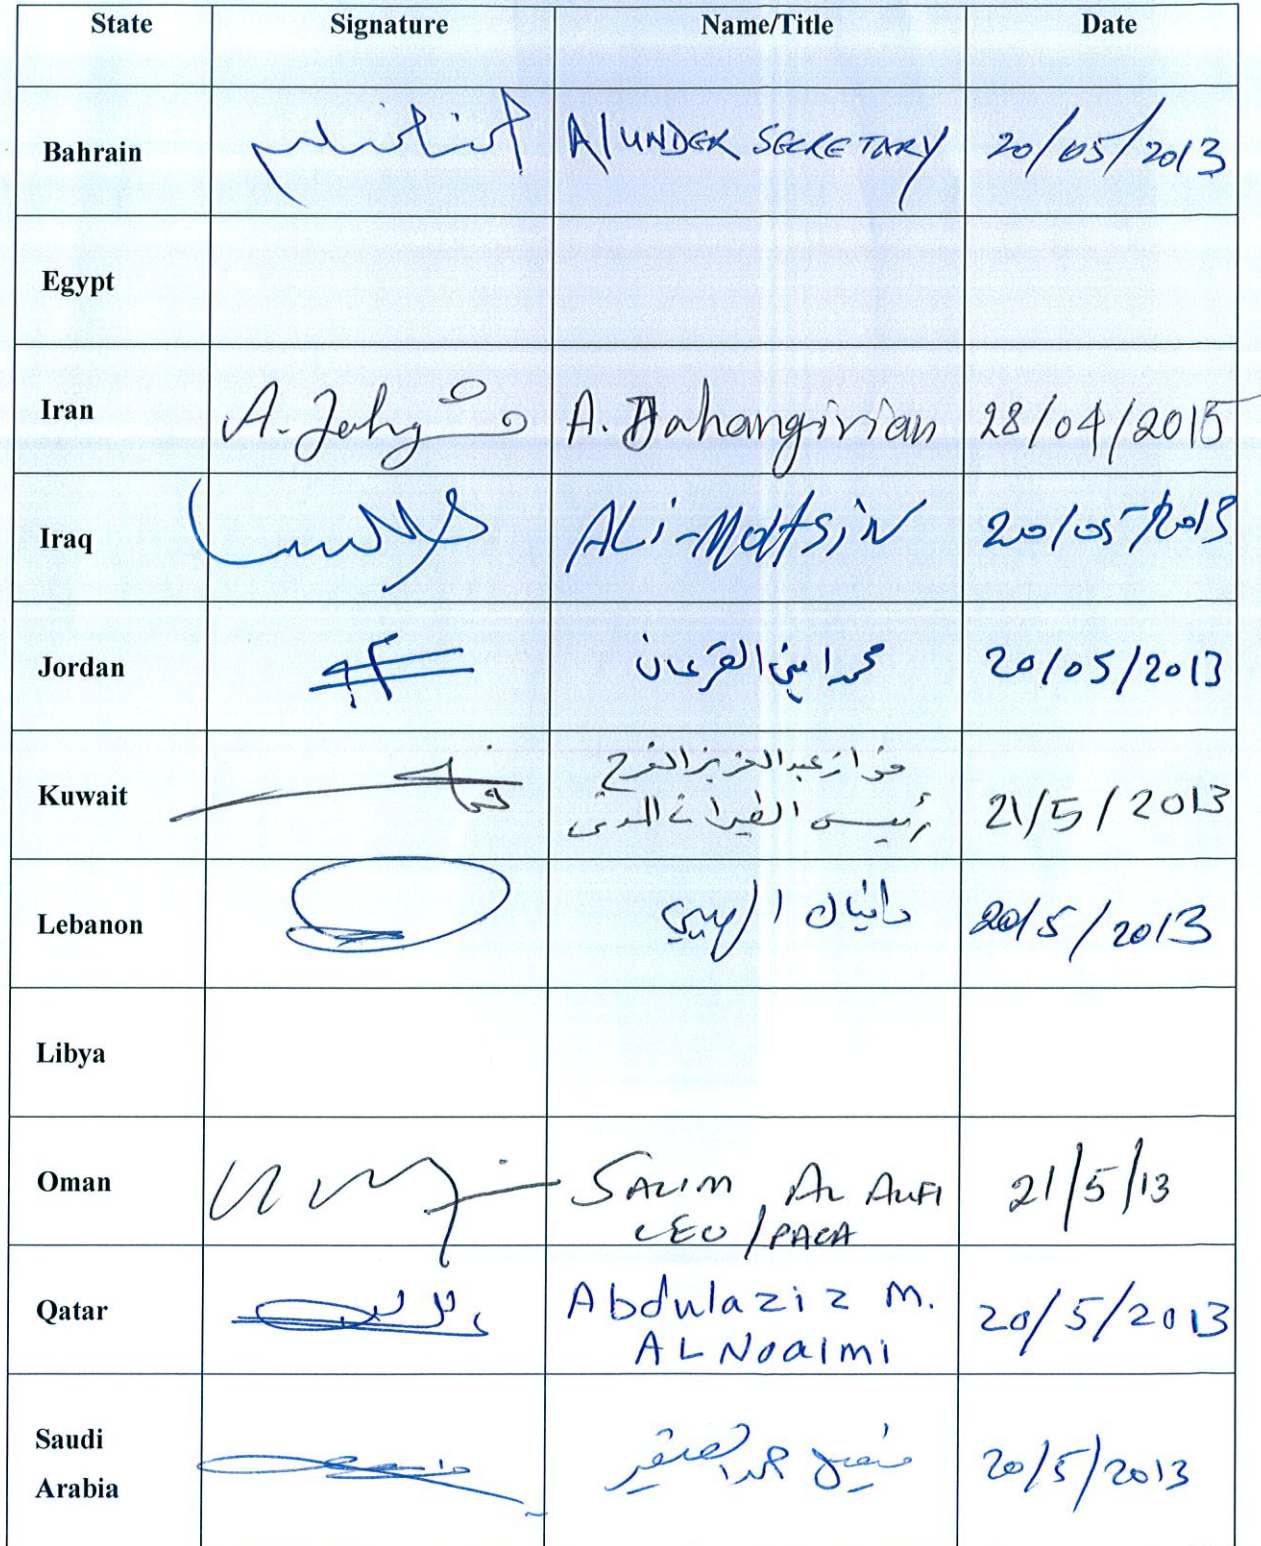 State Signature Name/Title Date
Bahrain A/UNDER SECRETARY 20/05/2013
Egypt
Iran A. Jahangirian 28/04/2015
Iraq ALi-MOHSIN 20/05/2013
Jordan محمد امين القرعان 20/05/2013
Kuwait فواز عبدالعزيز الفرح
رئيس الطيران المدني 21/5/2013
Lebanon دانيال الهيبي 20/5/2013
Libya
Oman SALIM AL AUFI 21/5/13
CEO/PACA
Qatar Abdulaziz M. 20/5/2013
AL Noaimi
Saudi
Arabia محمد 20/5/2013